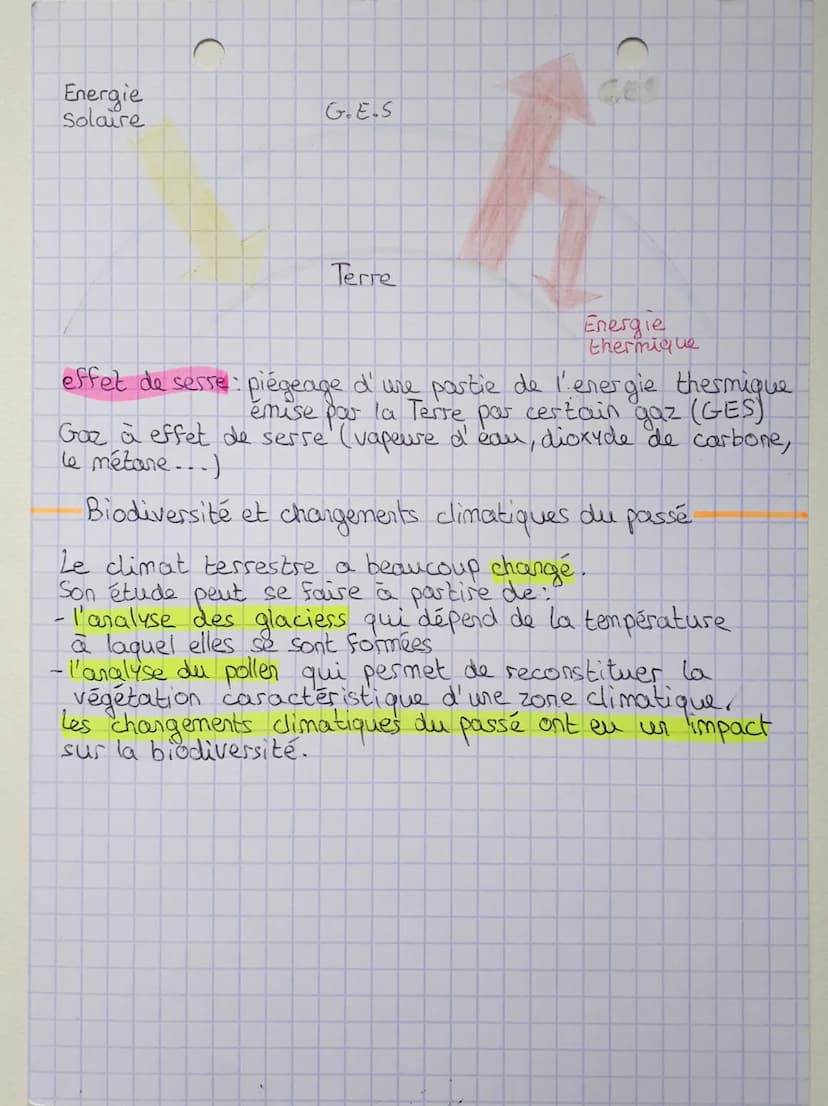 Energie
Solaire
G.E.S
G.E.S
Terre
Energie
thermique
effet de serre : piégeage d'une partie de l'energie thermique
émise par la Terre par certain gaz (GES)
Gaz à effet de serre (vapeure d'eau, dioxyde de carbone,
le métane...)
Biodiversité et changements climatiques du passé
Le climat terrestre a beaucoup changé.
Son étude peut se faire à partire de :
- l'analyse des glaciers qui dépend de la température
à laquel elles se sont formées
- l'analyse du pollen qui permet de reconstituer la
végétation caractéristique d'une zone climatique.
Les changements climatiques du passé ont eu un impact
sur la biodiversité.